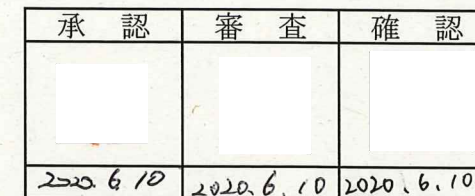 承認 審査 確認
2020.6.10 2020.6.10 2020.6.10